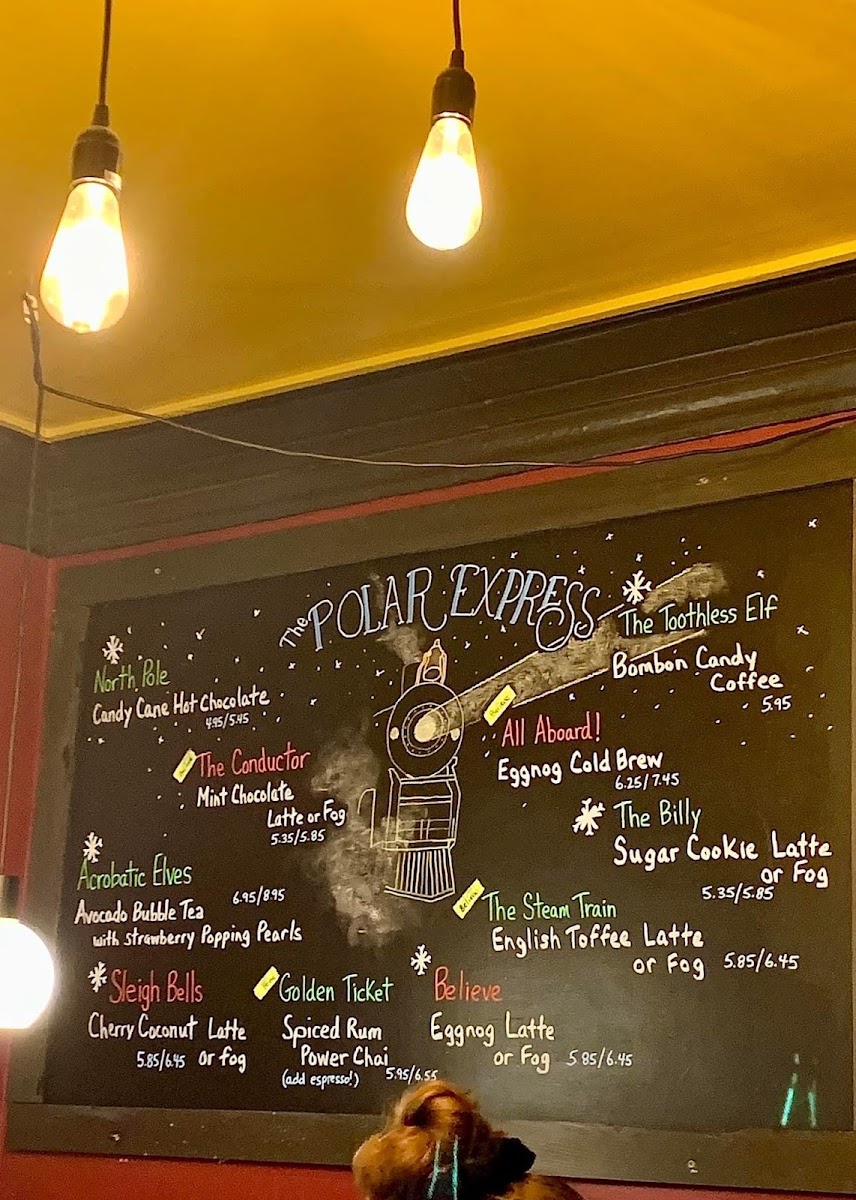 The POLAR EXPRESS
North Pole
Candy Cane Hot Chocolate
4.95/5.45
The Conductor
Mint Chocolate
Latte or Fog
5.35/5.85
Acrobatic Elves
6.95/8.95
Avocado Bubble Tea
with Strawberry Popping Pearls
Sleigh Bells
Cherry Coconut Latte
5.85/6.45 or fog
Golden Ticket
Spiced Rum
Power Chai
(add espresso!) 5.95/6.55
Believe
Eggnog Latte
or Fog 5.85/6.45
The Toothless Elf
Bombon Candy
Coffee
5.95
All Aboard!
Eggnog Cold Brew
6.25/7.45
The Billy
Sugar Cookie Latte
or Fog
5.35/5.85
Believe
The Steam Train
English Toffee Latte
or Fog 5.85/6.45